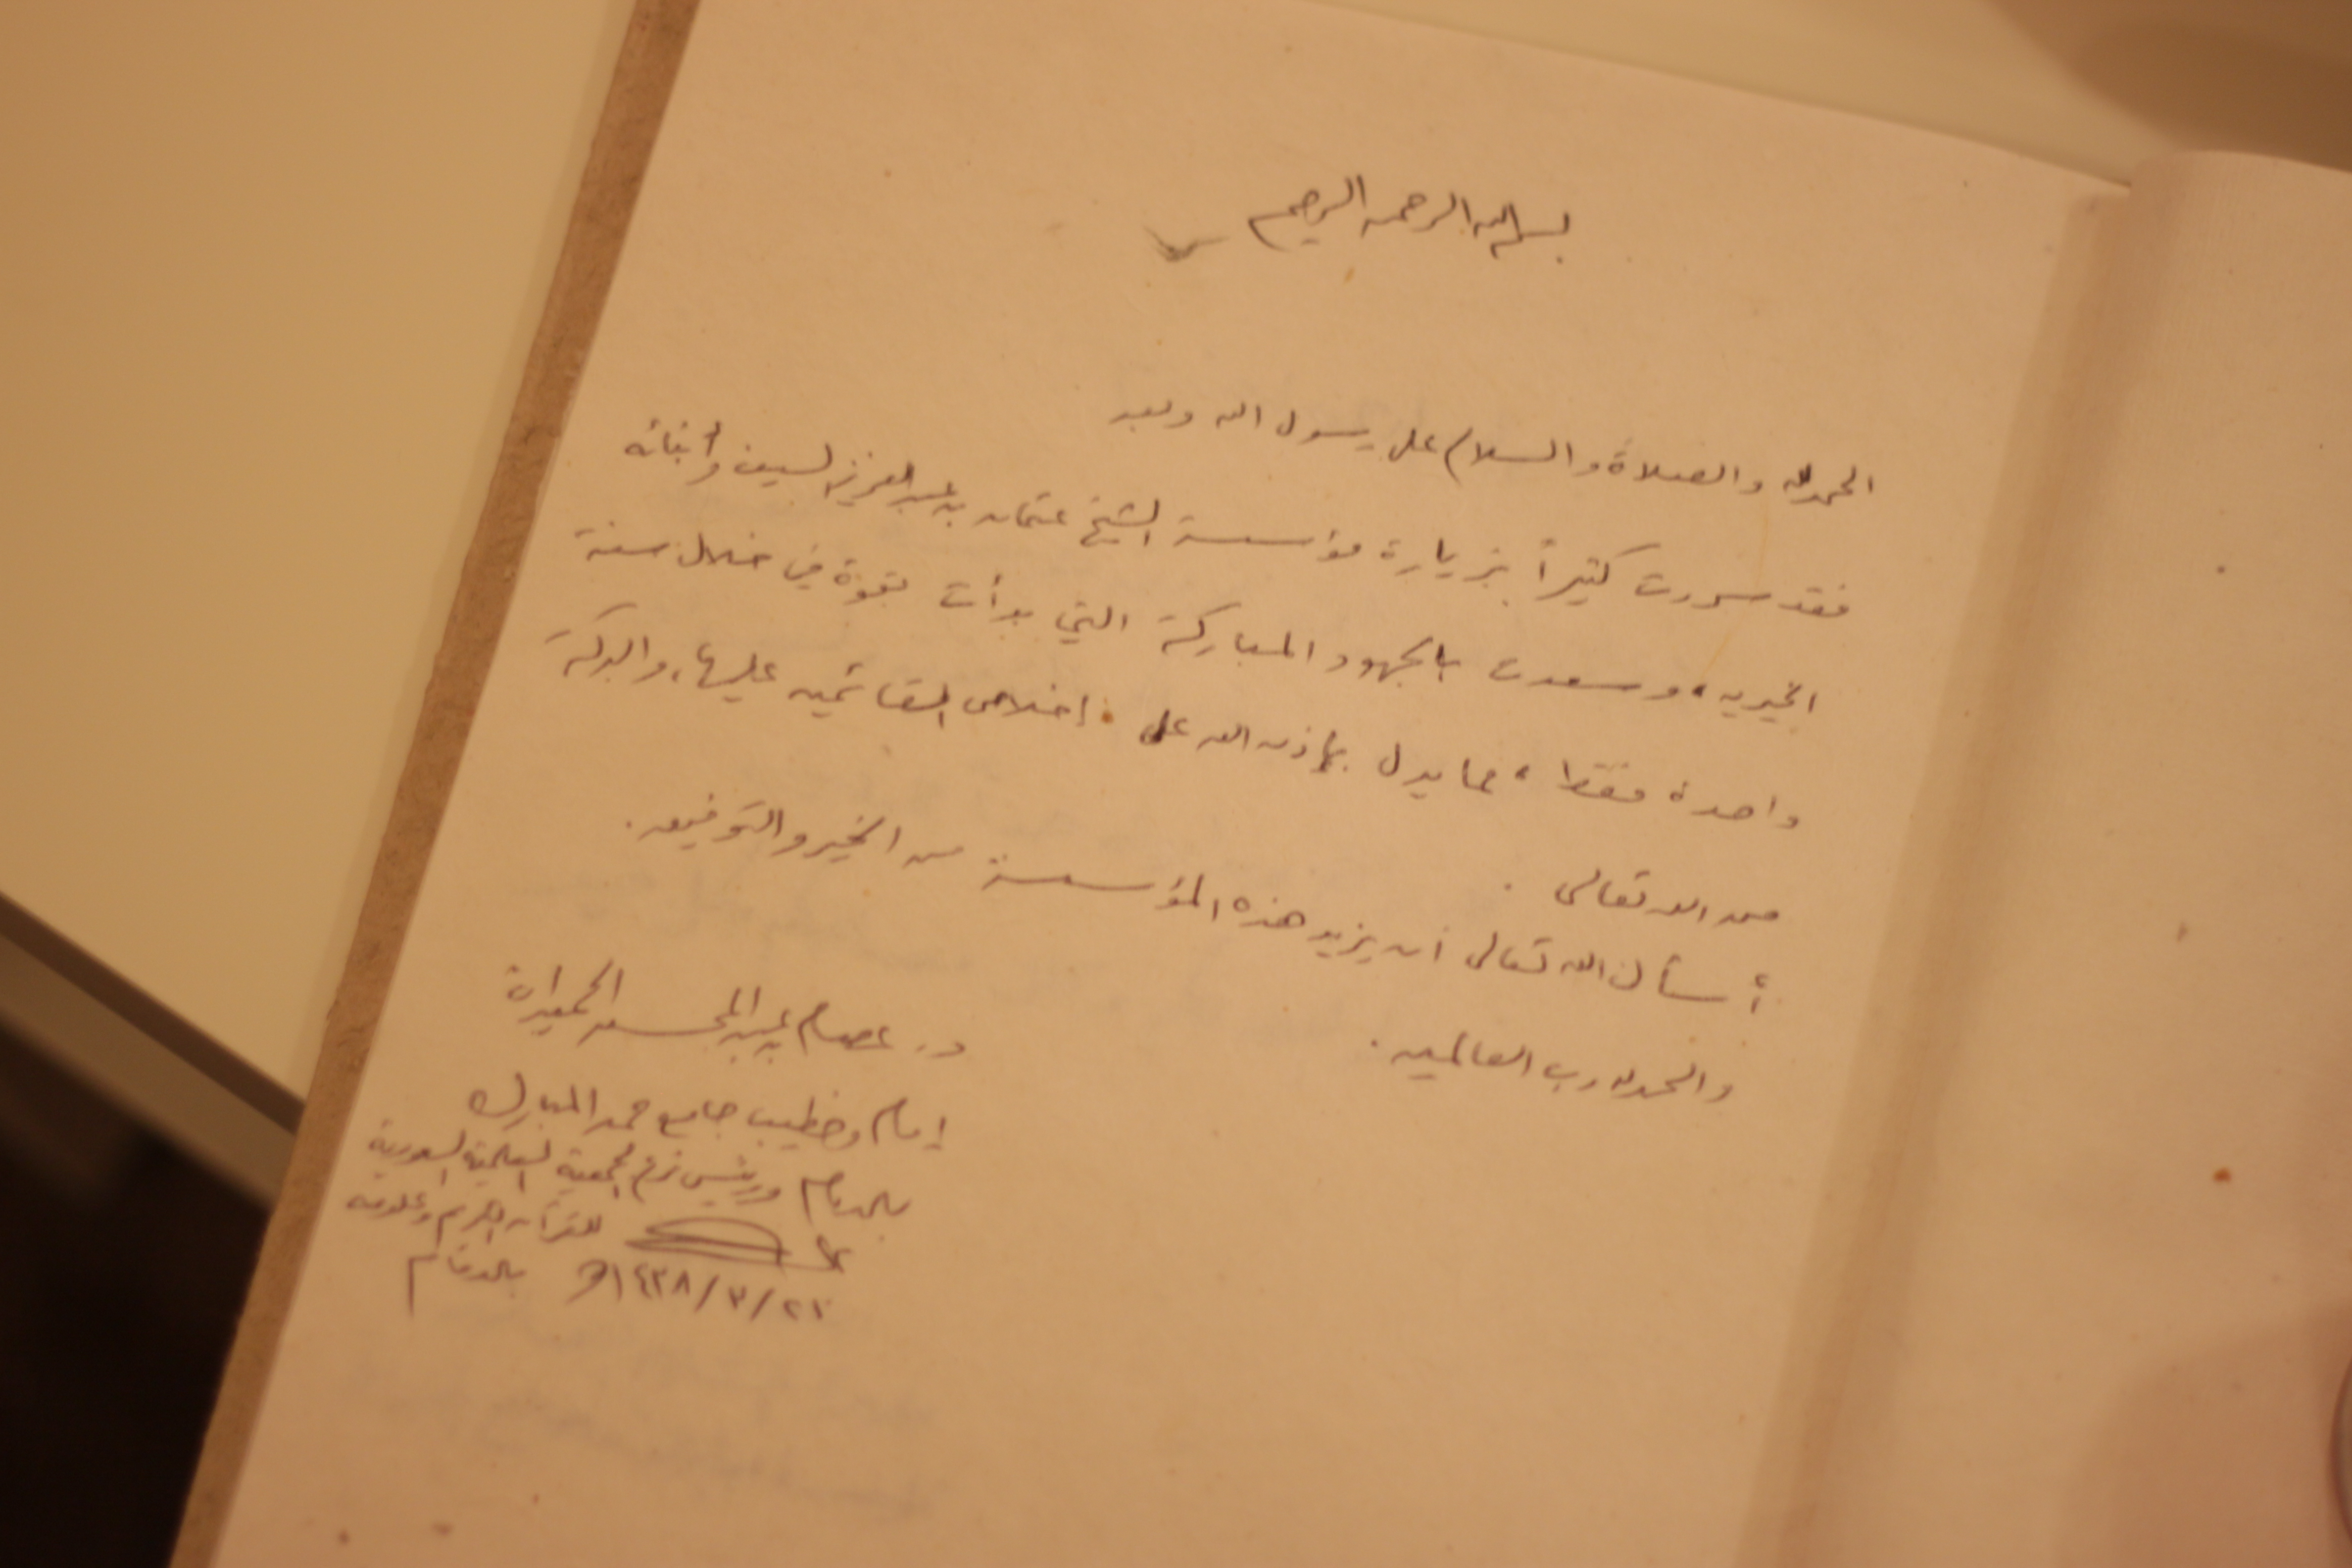 بسم الله الرحمن الرحيم
الحمد لله والصلاة والسلام على رسول الله وبعد
فقد سررت كثيراً بزيارة مؤسسة الشيخ عثمان بن عبدالعزيز السيف وأبنائه
الخيرية، وسعدت بالجهود المباركة التي بدأت بقوة في خلال سنة
واحدة فقط، مما يدل بإذن الله على إخلاص القائمين عليها، والبركة
من الله تعالى.
أسأل الله تعالى أن يزيد هذه المؤسسة من الخير والتوفيق.
والحمد لله رب العالمين.
د. عصام بن عبدالمحسن الحميدان
إمام وخطيب جامع حمد المبارك
بالدمام ورئيس فرع الجمعية العلمية السعودية
للقرآن الكريم وعلومه
بالدمام
٢٢/٣/١٤٣٨هـ